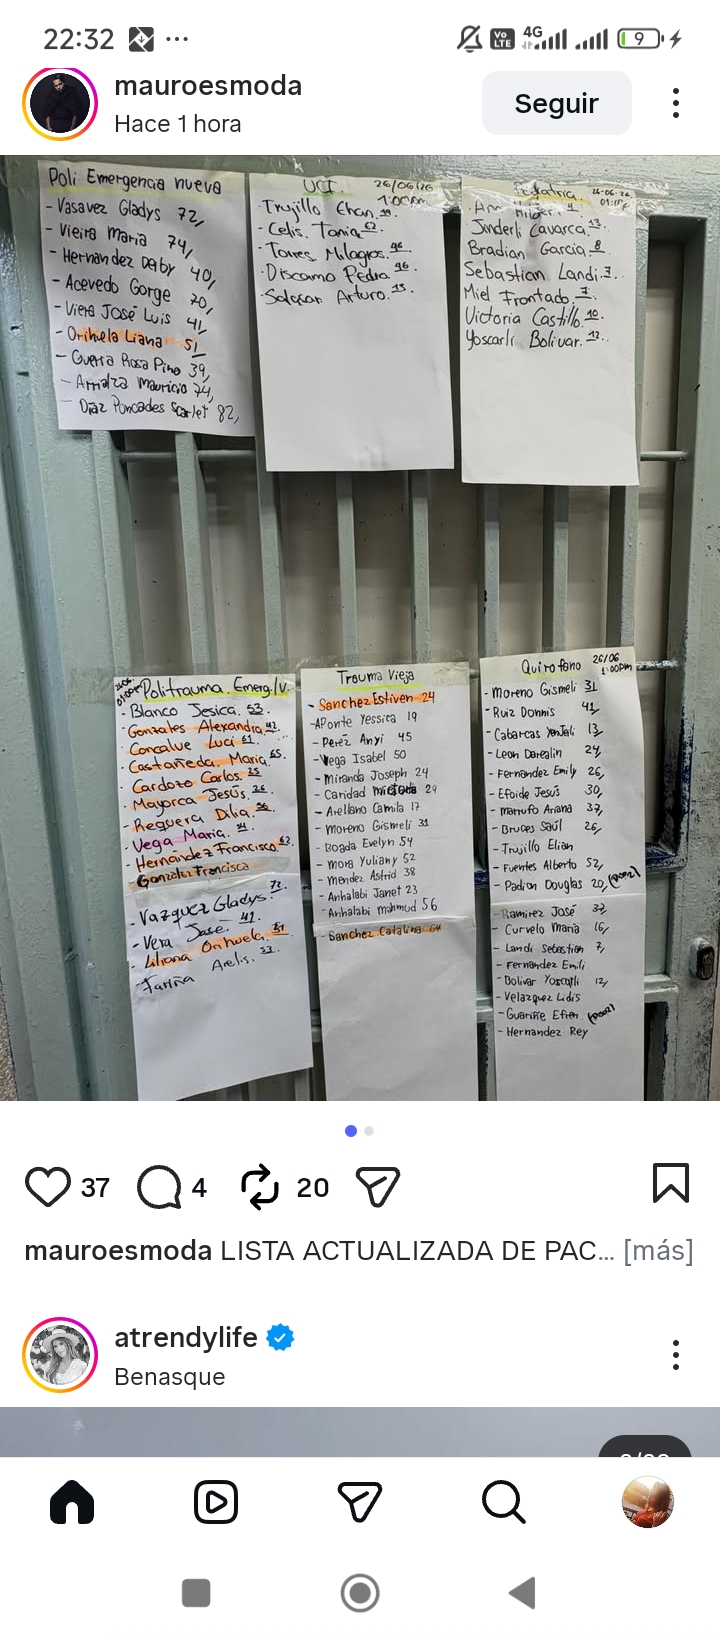 22:32
Vo LTE
4G
9
mauroesmoda
Hace 1 hora
Seguir
Poli Emergencia nueva
- Vasavez Gladys 72,
- Vieira Maria 74,
- Hernandez Deby 40,
- Acevedo Gorge 70,
- Viera José Luis 41,
- Orihuela Liana 51
- Guerra Rosa Pino 39,
- Arriaza Mauricio 74,
- Diaz Poncades Scarlet 82,
UCI. 26/06/26
1:00pm.
- Trujillo Ehan.
- Celis. Tania. 62
- Torres Milagros. 46
- Discamo Pedro. 46
- Salazar Arturo. 15.
Pediatria 26-06-26
- Jinderli Cavarca. 13
Bradian Garcia. 8
Sebastian Landi. 7.
Miel Frontado. 7.
Victoria Castillo. 10.
Yoscarli Bolivar. 12.
Politrauma. Emerg/V.
- Blanco Jesica. 53.
- Gonzales Alexandria. 42
- Goncalve Luci. 61.
- Castañeda. Maria. 65.
- Cardozo Carlos. 25
- Mayorca Jesús. 26.
- Requera Dilia. 56
- Vega Maria.
- Hernández Francisco. 62
- Gonzalez Francisca
- Vazquez Gladys. 72.
- Vera Jose. 41.
- Liliana Orihuela. 51
- Fariña Arelis. 53.
Trauma Vieja
- Sanchez Estiven 24
- APonte Yessica 19
- Perez Anyi 45
- Vega Isabel 50
- Miranda Joseph 24
- Caridad 29
- Arellano Camila 17
- Moreno Gismeli 31
- Boada Evelyn 54
- Mora Yuliany 52
- Mendez Astrid 38
- Anhalabi Janet 23
- Anhalabi mahmud 56
- Sanchez Catalina 64
Quirofano 26/06
1:00pm
- Moreno Gismeli 31
- Ruiz Donnis 41,
- Cabarcas 13,
- Leon Darealin 24,
- Fernandez Emily 26,
- Efoide Jesús 30,
- Marrufo Ariana 37,
- Bruces Saúl 26,
- Trujillo Elian
- Fuentes Alberto 52,
- Padron Douglas 20,
Ramirez José 37,
- Curvelo Maria 16,
- Landi Sebastian 7,
- Fernandez Emili
- Bolivar Yoscarli 12,
- Velazquez Lidis
- Guariñe Efren
- Hernandez Rey
37
4
20
mauroesmoda LISTA ACTUALIZADA DE PAC... [más]
atrendylife
Benasque